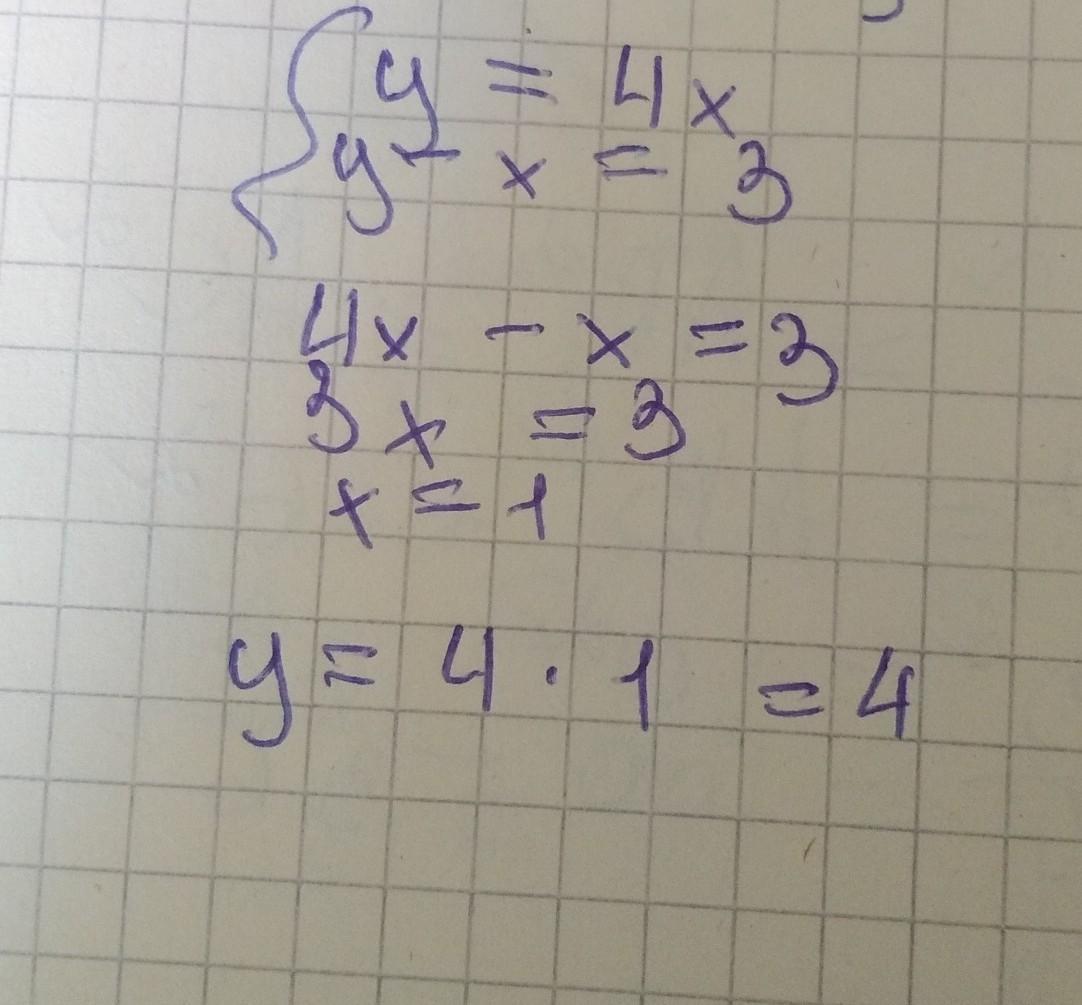 { y = 4x
y - x = 3
4x - x = 3
3x = 3
x = 1
y = 4 · 1 = 4